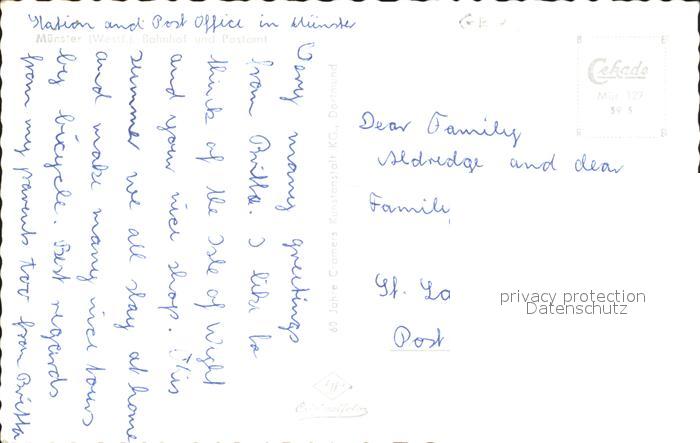 Station and Post Office in Münster
Münster (Westf.) Bahnhof und Postamt
Very many greetings
from Britta. I like to
think of the Isle of Wight
and your nice shop. This
summer we all stay at home
and make many nice tours
by bicycle. Best regards
from my parents too from Britta
60 Jahre Cramers Kunstanstalt KG., Dortmund
Cekade
Mür 127
59 5
Dear Family
Aldredge and dear
Family
St. La
Post
privacy protection
Datenschutz